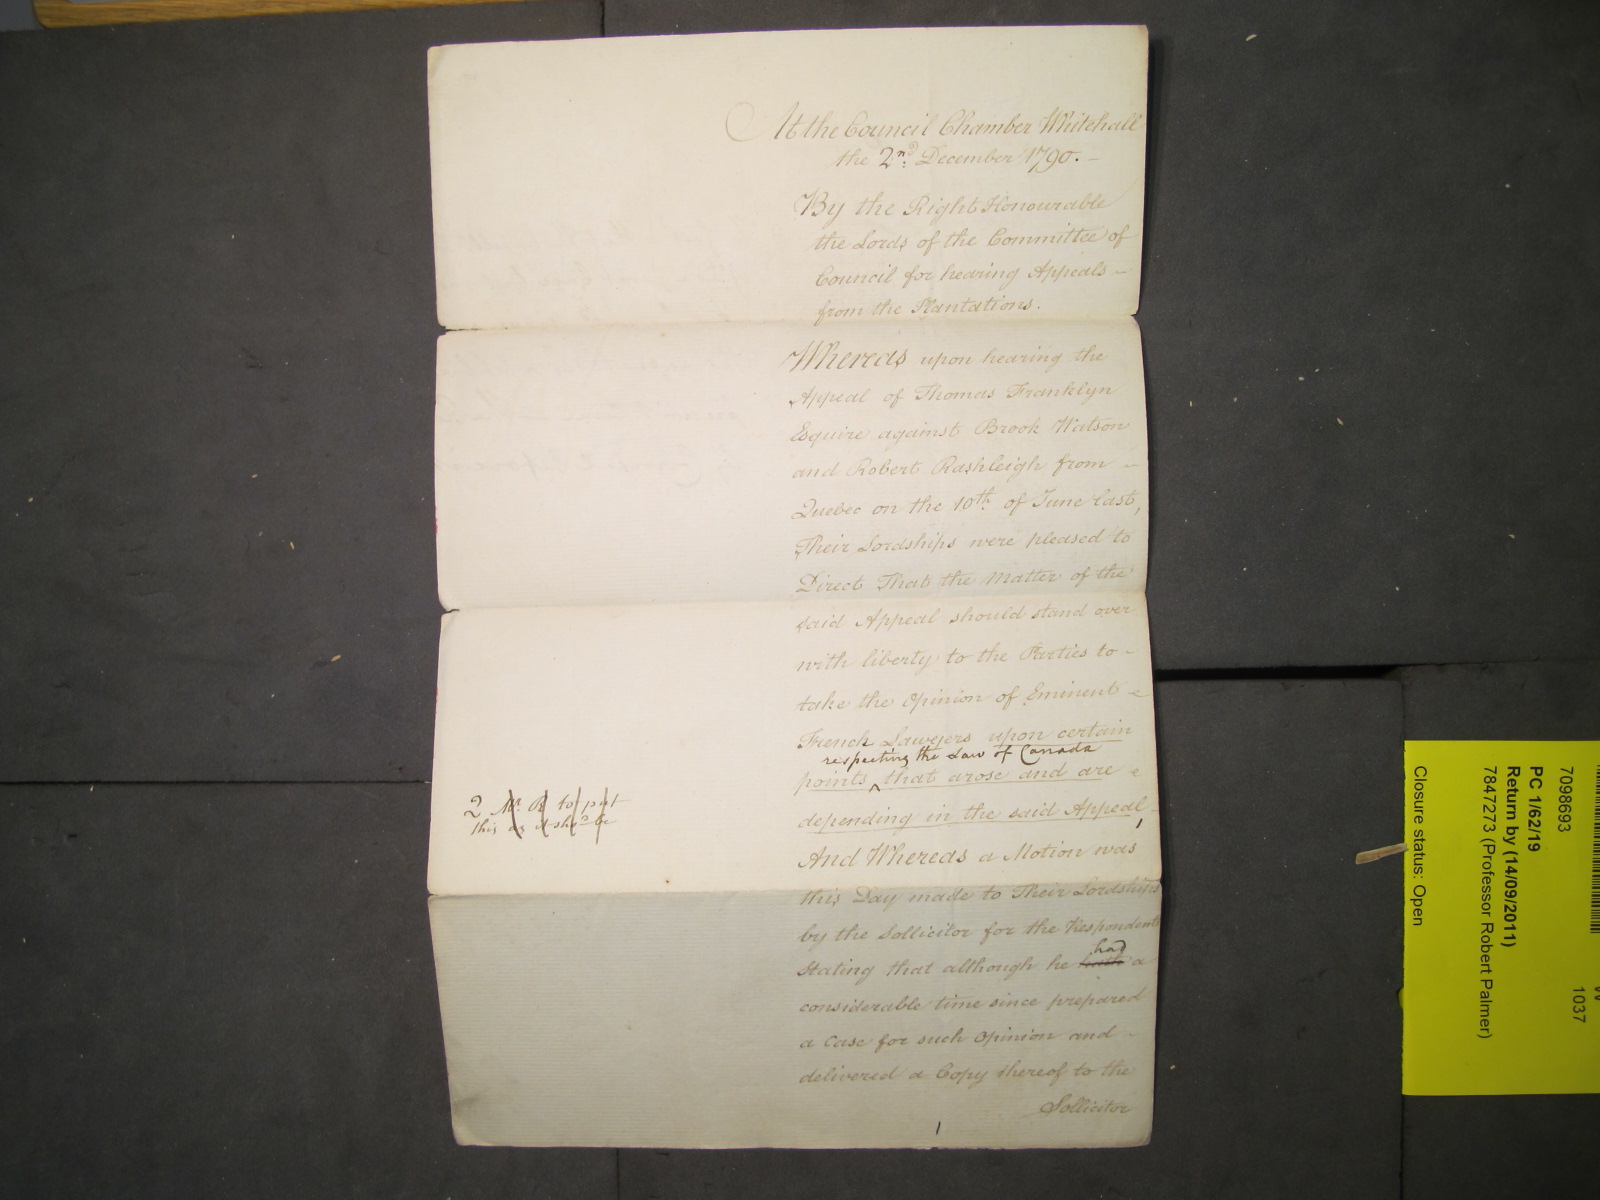 At the Council Chamber Whitehall
the 2nd. December 1790. -
By the Right Honourable
the Lords of the Committee of
Council for hearing Appeals -
from the Plantations.
Whereas upon hearing the
Appeal of Thomas Franklyn
Esquire against Brook Watson
and Robert Rashleigh from -
Quebec on the 10th. of June last,
Their Lordships were pleased to
Direct That the Matter of the
said Appeal should stand over
with liberty to the Parties to -
take the Opinion of Eminent -
French Lawyers upon certain
respecting the Law of Canada
points ‸ that arose and are -
depending in the said Appeal,
And Whereas a Motion was
this Day made to Their Lordships
by the Sollicitor for the Respondents
had
Stating that although he hath a
considerable time since prepared
a Case for such Opinion and -
delivered a Copy thereof to the
Sollicitor
2 Mr. R to put
this as it shd. be
1
7098693
PC 1/62/19
Return by (14/09/2011)
7847273 (Professor Robert Palmer)
Closure status: Open
1037